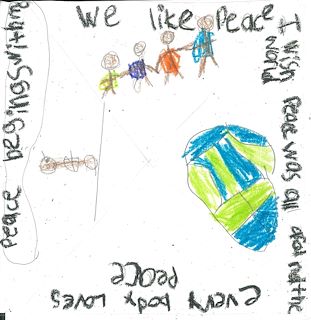 We like Peace
I wish Peace was all arond the
world
every body Loves
Peace
Peace beginys with me